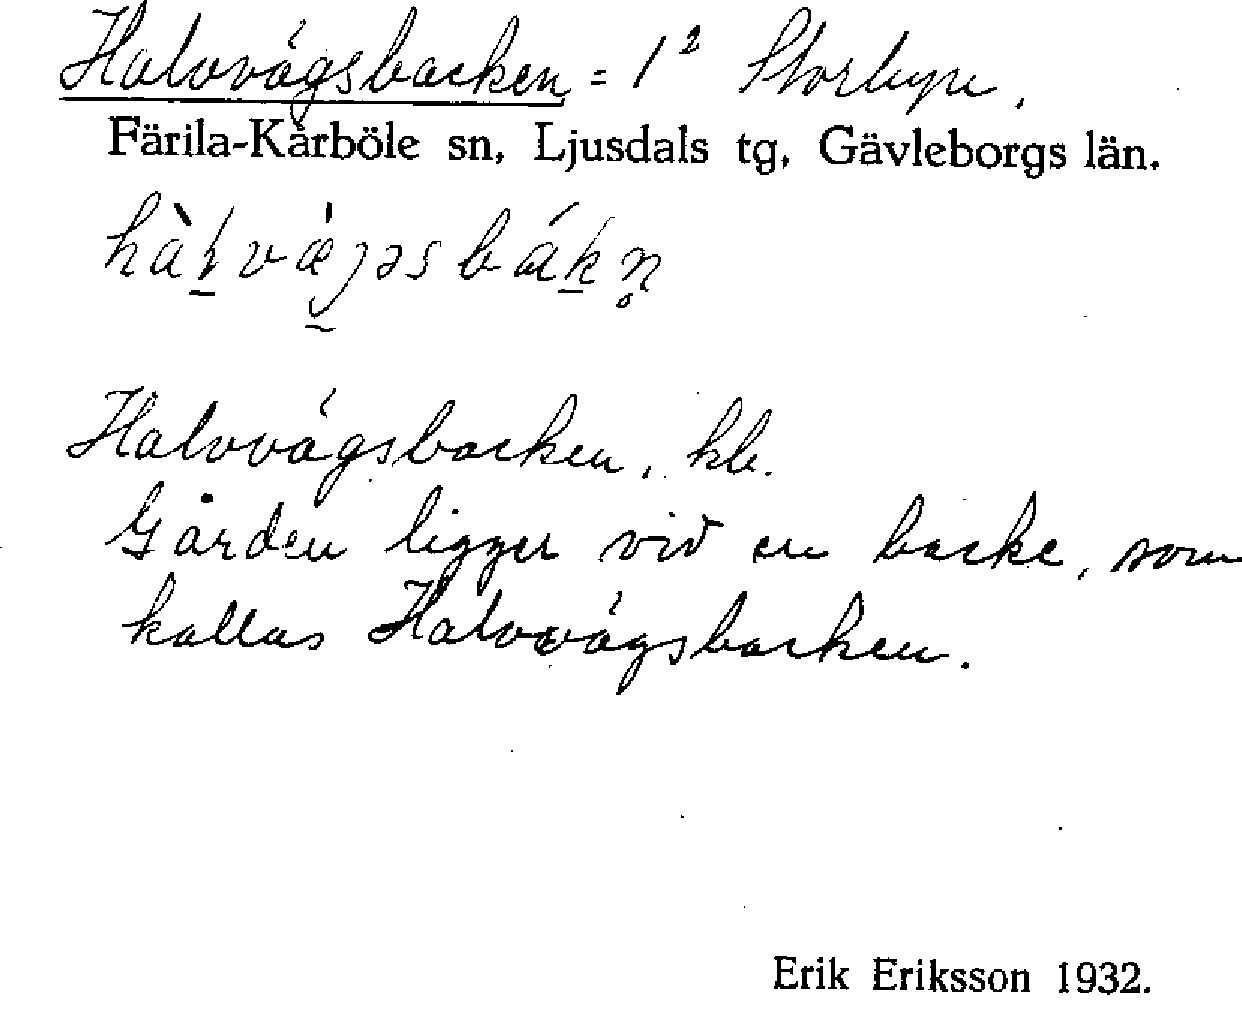 Halvvägsbacken = 1² Storbyn,
Färila-Kårböle sn, Ljusdals tg, Gävleborgs län.
Halvvägsbacken, kb.
Gården ligger vid en backe, som
kallas Halvvägsbacken.
Erik Eriksson 1932.